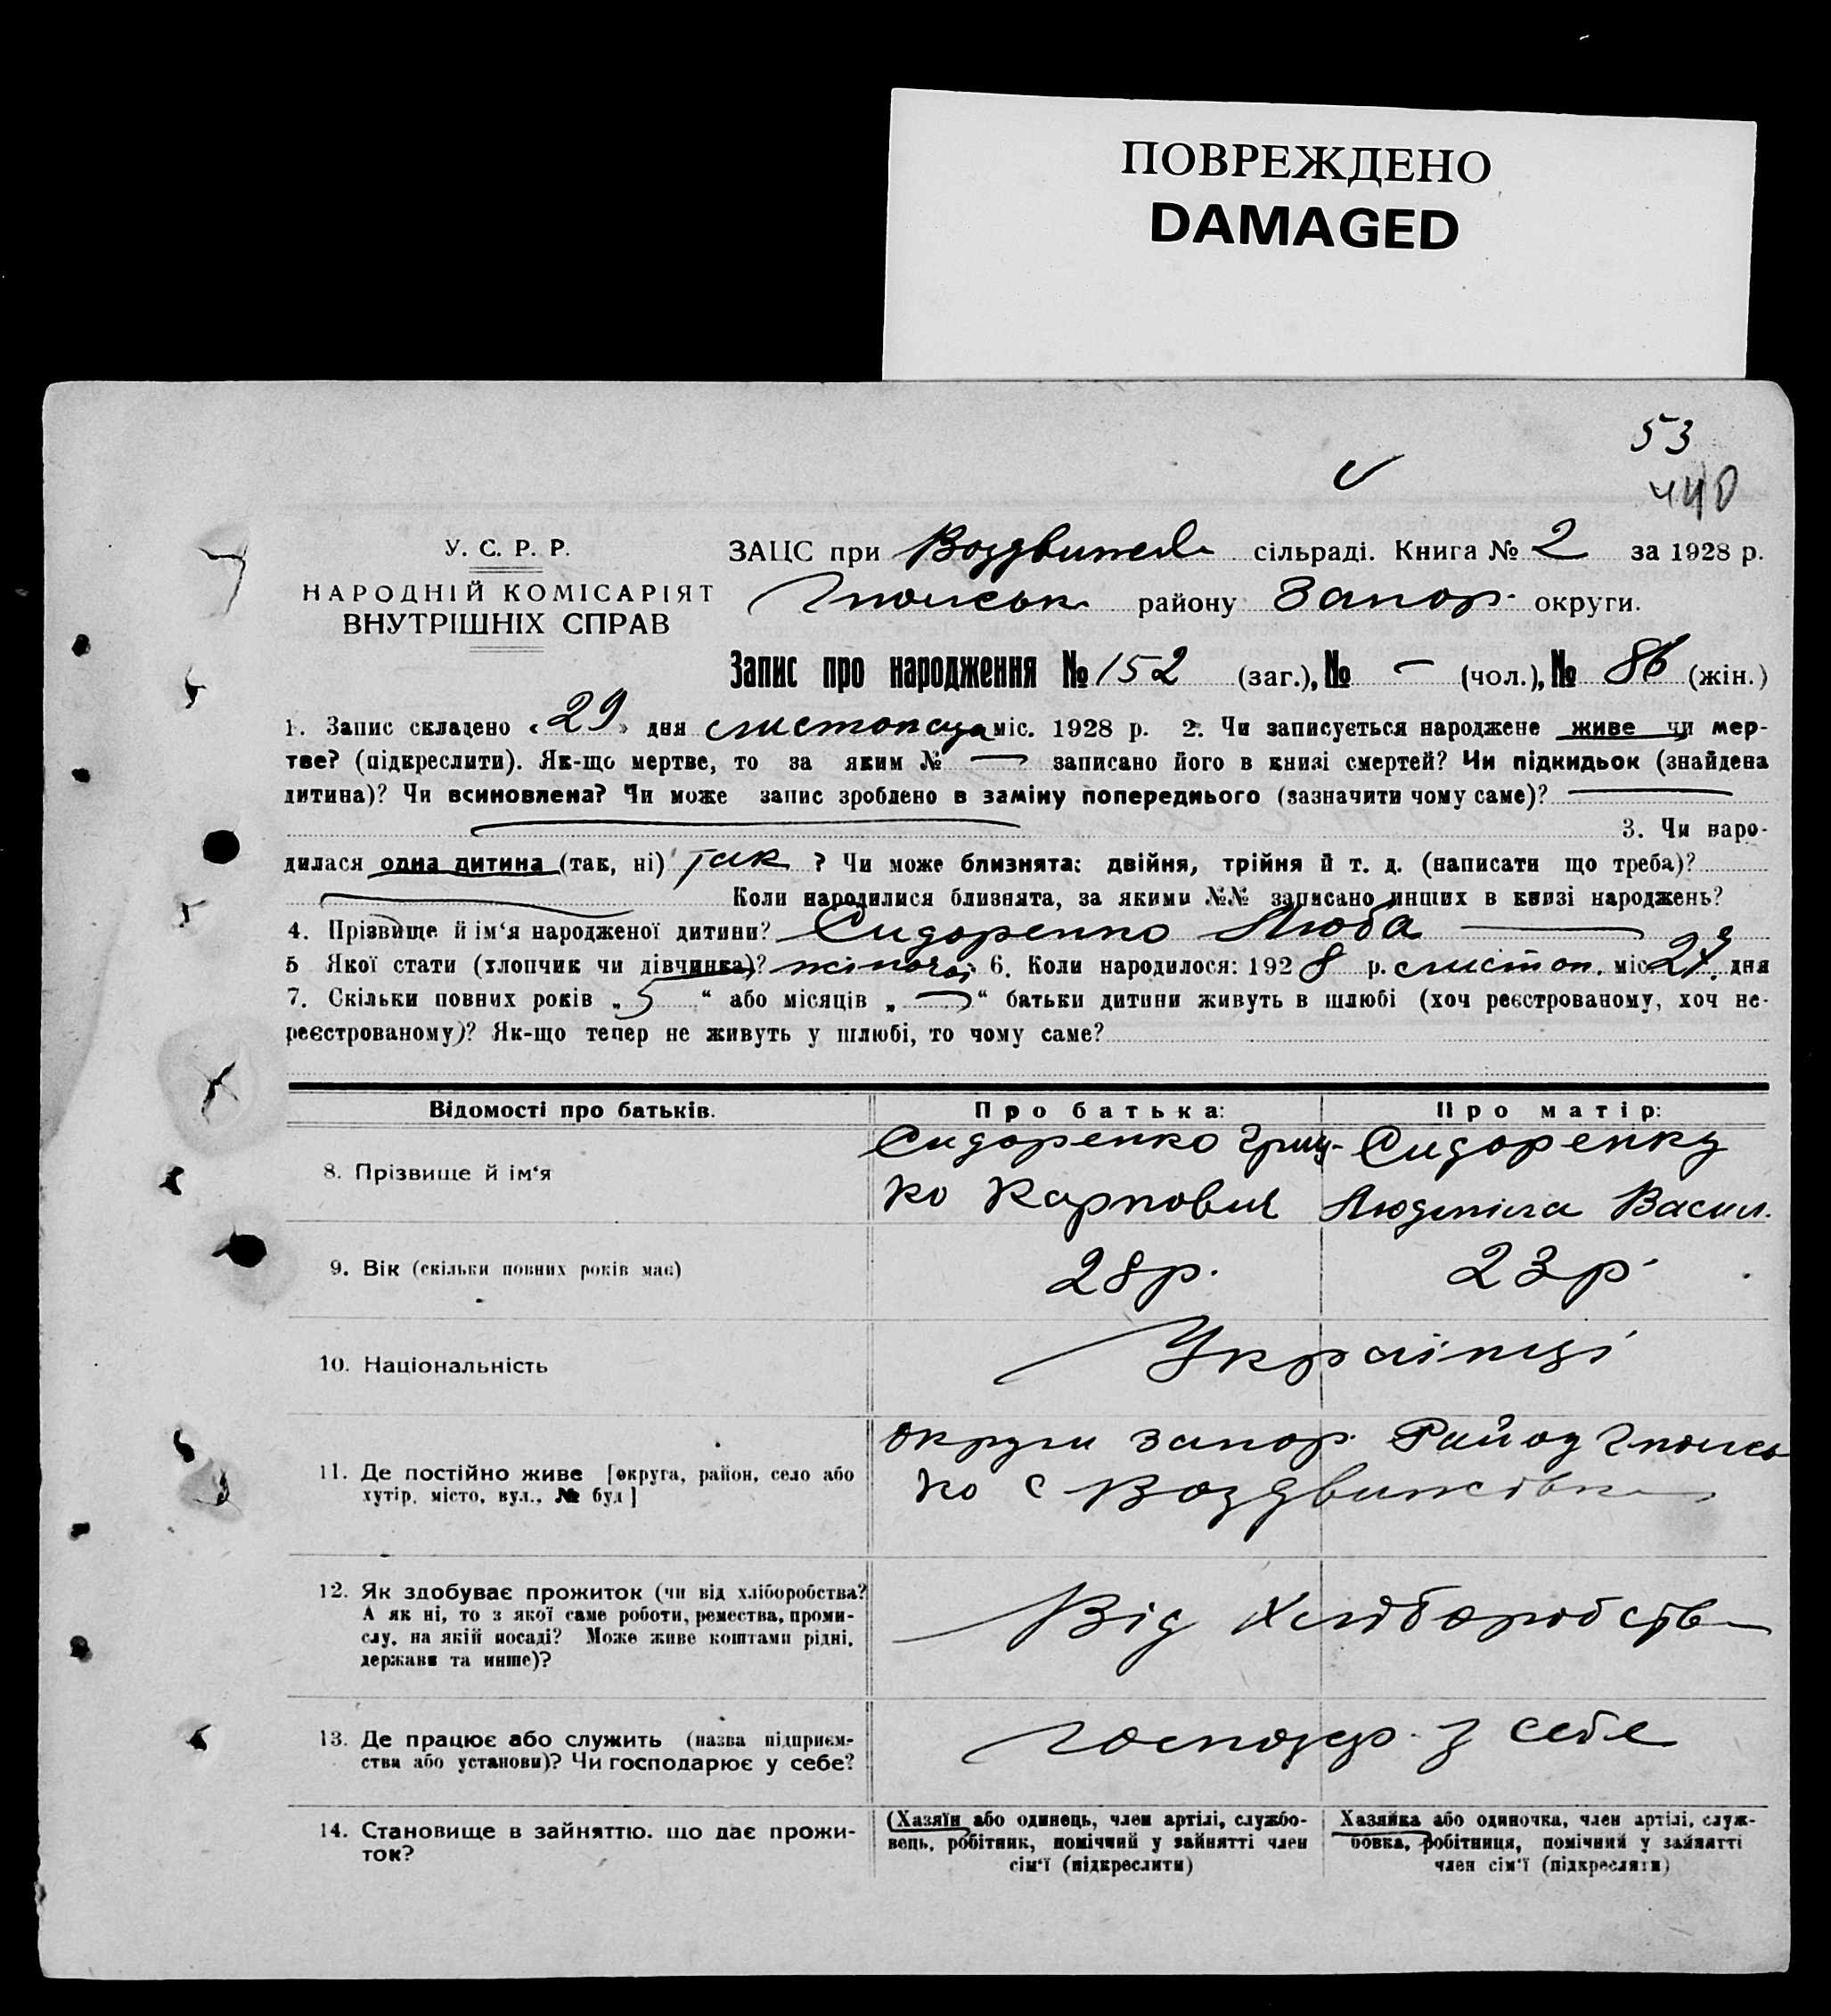 ПОВРЕЖДЕНО
DAMAGED
53
440
У. С. Р. Р.
НАРОДНІЙ КОМІСАРІЯТ
ВНУТРІШНІХ СПРАВ
ЗАЦС при Воздвижев сільраді. Книга № 2 за 1928 р.
району Запор. округи.
Запис про народження № 152 (заг.), № – (чол.), № 86 (жін.)
1. Запис складено « 29 » дня листопада міс. 1928 р. 2. Чи записується народжене живе чи мер-
тве? (підкреслити). Як-що мертве, то за яким № — записано його в книзі смертей? Чи підкидьок (знайдена
дитина)? Чи всиновлена? Чи може запис зроблено в заміну попереднього (зазначити чому саме)? —
3. Чи наро-
дилася одна дитина (так, ні) так ? Чи може близнята: двійня, трійня й т. д. (написати що треба)?
Коли народилися близнята, за якими №№ записано инших в книзі народжень?
4. Прізвище й ім‘я народженої дитини? Сидоренко Люба —
5 Якої стати (хлопчик чи дівчинка)? жіночої 6. Коли народилося: 1928 р. листоп. міс. дня
7. Скільки повних років „ 5 “ або місяців „ — “ батьки дитини живуть в шлюбі (хоч реєстрованому, хоч не-
реєстрованому)? Як-що тепер не живуть у шлюбі, то чому саме?
Відомості про батьків. Про батька: Про матір:
8. Прізвище й ім‘я
Сидоренко Гриц-
ко Карпович
Сидоренко
Людміла Васил.
9. Вік (скільки повних років має) 28 р. 23 р.
10. Національність Українці
11. Де постійно живе [округа, район, село або
хутір, місто, вул., № буд]
округи Запор. Район
ко с Воздвижівка
12. Як здобуває прожиток (чи від хліборобства?
А як ні, то з якої саме роботи, ремества, проми-
слу, на якій посаді? Може живе коштами рідні,
держави та инше)?
Від хліборобств
13. Де працює або служить (назва підприєм-
ства або установи)? Чи господарює у себе?
Господар. у себе
14. Становище в зайняттю, що дає прожи-
ток?
(Хазяїн або одинець, член артілі, службо-
вець, робітник, помічний у зайнятті член
сім‘ї (підкреслити)
Хазяйка або одиночка, член артілі, служ-
бовка, робітниця, помічний у зайнятті
член сім‘ї (підкреслити)